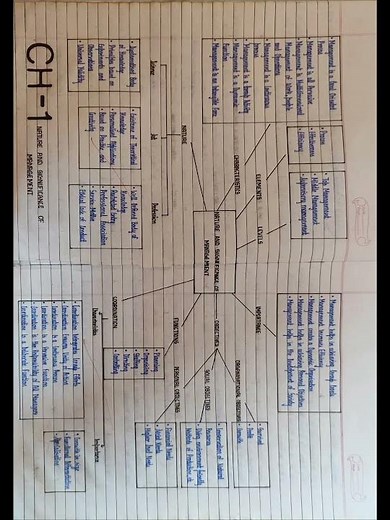 CH-1 NATURE AND SIGNIFICANCE OF
MANAGEMENT
NATURE AND SIGNIFICANCE OF
MANAGEMENT
CHARACTERISTICS
• Management is a Goal Oriented
Process
• Management is All Pervasive
• Management is Multidimensional
• Management of Work, People
and Operations
• Management is a Continuous
Process
• Management is a Group Activity
• Management is a Dynamic
Function
• Management is an Intangible Force
ELEMENTS
• Process
• Effectiveness
• Efficiency
LEVELS
• Top Management
• Middle Management
• Supervisory Management
IMPORTANCE
• Management helps in achieving Group Goals
• Management Increases Efficiency
• Management creates a Dynamic Organisation
• Management helps in achieving Personal Objectives
• Management helps in the Development of Society
NATURE
Science
• Systematised Body
of Knowledge
• Principles based on
Experiments and
Observations
• Universal Validity
Art
• Existence of Theoretical
Knowledge
• Personalised Application
• Based on Practice and
Creativity
Profession
• Well defined Body of
Knowledge
• Restricted Entry
• Professional Association
• Service Motive
• Ethical Code of Conduct
OBJECTIVES
ORGANISATIONAL OBJECTIVES
• Survival
• Profit
• Growth
SOCIAL OBJECTIVES
PERSONAL OBJECTIVES
• Financial Needs
• Social Needs
• Higher Level Needs
FUNCTIONS
• Planning
• Organising
• Staffing
• Directing
• Controlling
COORDINATION
Characteristics
• Coordination Integrates Group Efforts
• Coordination Ensures Unity of Action
• Coordination is a Continuous Process
• Coordination is a Pervasive Function
• Coordination is the Responsibility of All Managers
• Coordination is a Deliberate Function
Importance
• Growth in size
• Functional Differentiation
• Specialisation